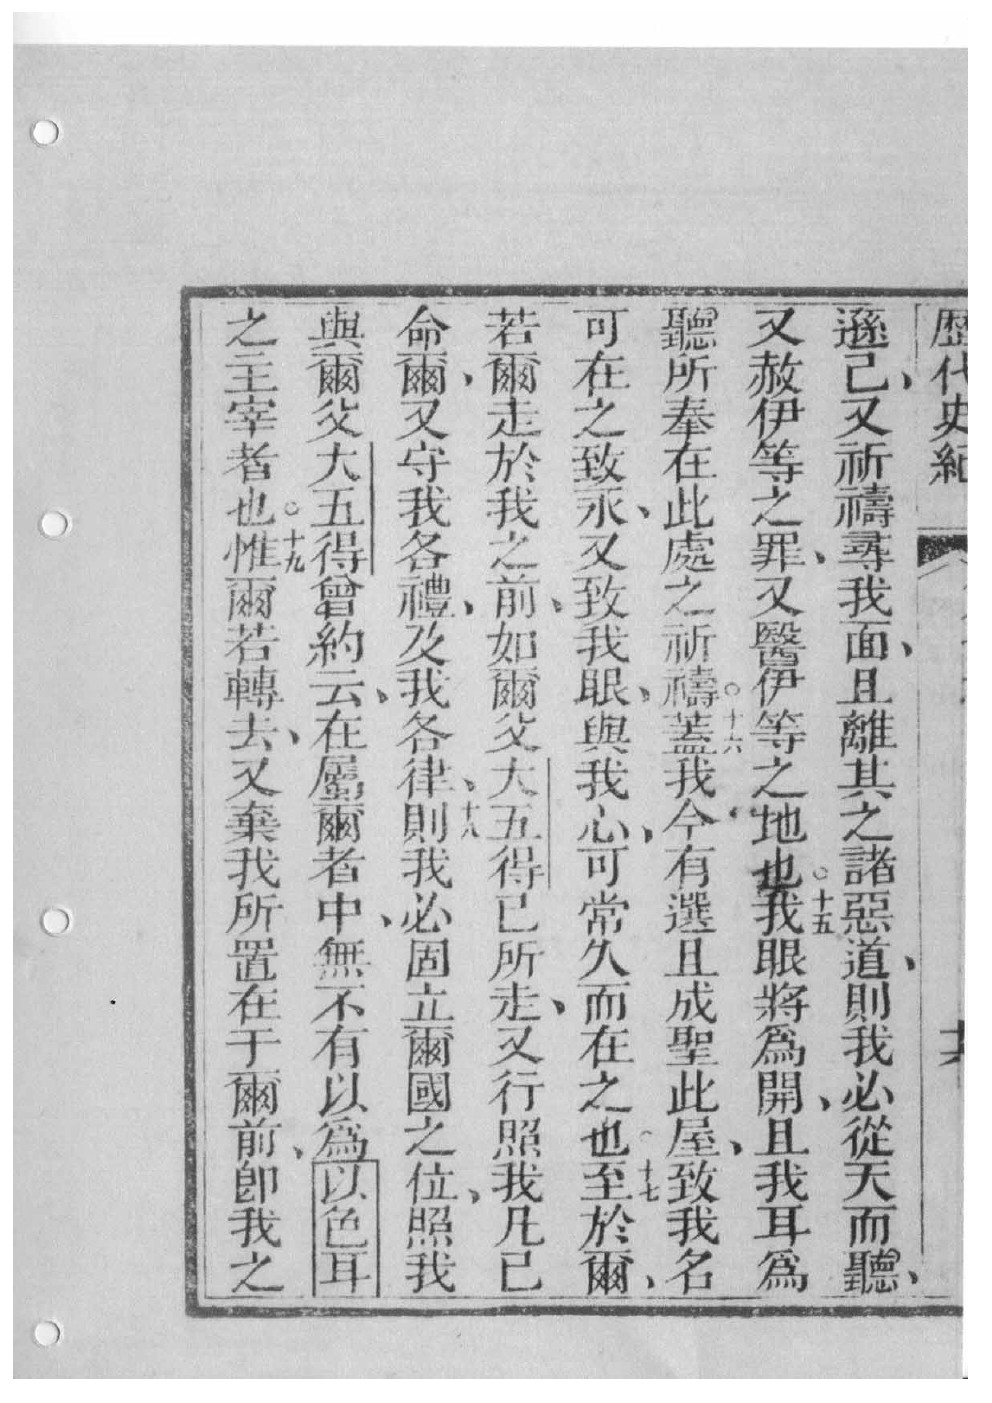 歷代史紀
遜己、又祈禱尋我面、且離其之諸惡道、則我必從天而聽、
又赦伊等之罪、又醫伊等之地也。十五我眼將爲開、且我耳爲
聽所奉在此處之祈禱。十六蓋我今有選且成聖此屋、致我名
可在之致永、又致我眼、與我心、可常久而在之也。十七至於爾、
若爾走於我之前、如爾父大五得已所走、又行照我凡已
命爾、又守我各禮、及我各律、十八則我必固立爾國之位、照我
與爾父大五得曾約云、在屬爾者中、無不有以爲以色耳
之主宰者也。十九惟爾若轉去、又棄我所置在于爾前、卽我之